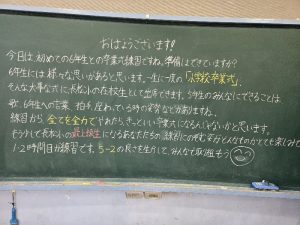 おはようございます!
今日は、初めての6年生との卒業式練習ですね。準備はできていますか?
6年生には様々な思いがあると思います。一生に一度の「小学校卒業式」。
そんな大事な式に、長松小の在校生として出席できます。5年生のみんなにできることは
歌、6年生への言葉、拍手、座っている時の姿勢などがありますね。
練習から、全てを全力でやれたら、きっといい卒業式になるんじゃないかと思います。
もう少しで長松小の最上級生になるあなたたちの「練習にのぞむ姿がどんなものか」とても楽しみで
1・2時間目が練習です。5-2の良さを生かして、みんなで取り組もう